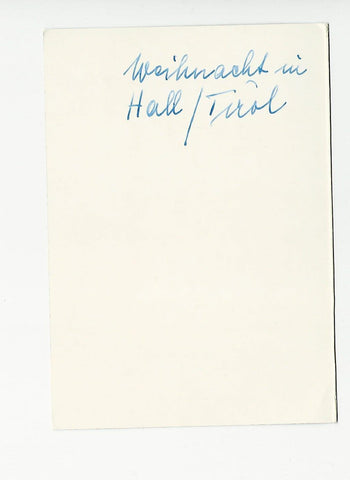 Weihnacht in
Hall / Tirol